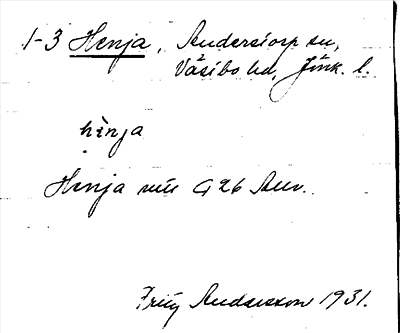 1-3 Henja, Anderstorp sn,
Västbo hd, Jönk. l.
hɛnja
Henja
Fritz Andersson 1931.